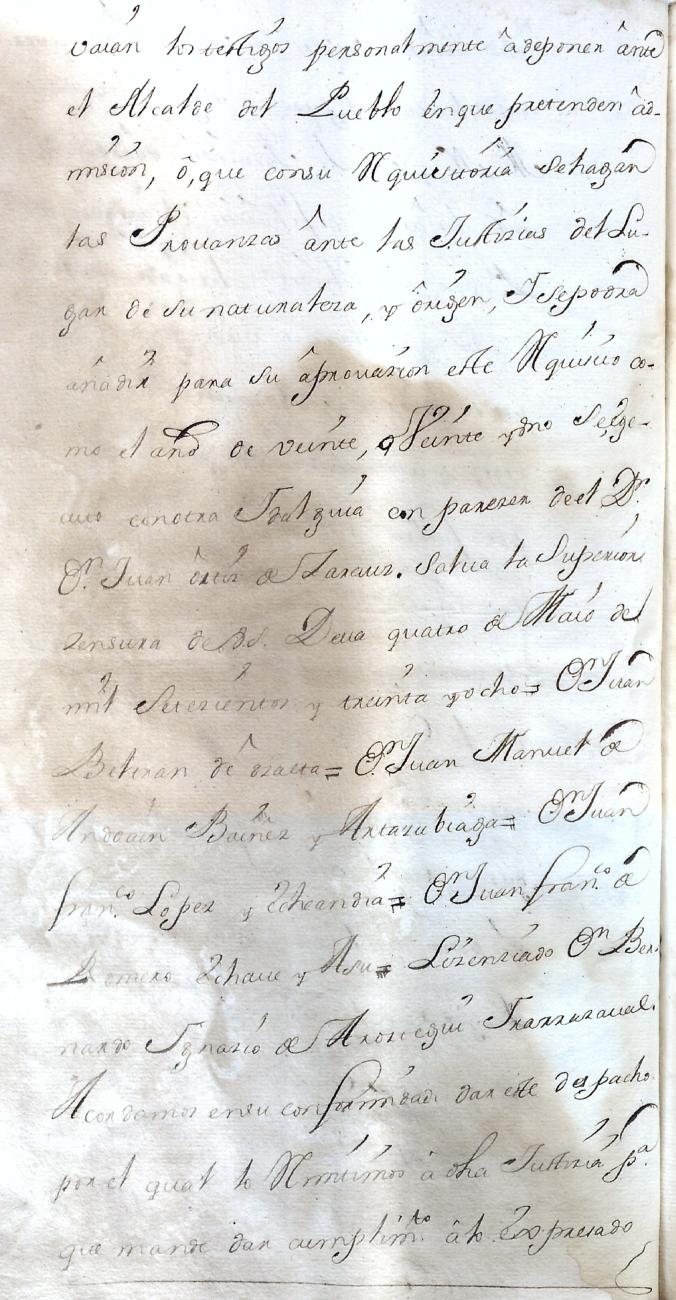 vaian los testigos personalmente â deponer ânte
el Alcalde del Pueblo en que pretenden âd-
mision, ô, que con su Rquisitoria se hagan
las Provanzas ânte las Justizias del Lu-
gar de su naturaleza, y ôrigen, I se podra
añadir para su âprovazion este Rquisito co-
mo el año de veinte, o Veinte y uno se ege-
cuto con otra Idalguia con parezer de el Dr.
Dn. Juan ôrtiz de Zarauz. Salva la Superior
zensura de V.S. Deva quatro de Maio de
mil setezientos y treinta y ocho= Dn. Juan
Beltran de ôzaeta= Dn. Juan Manuel de
Andoain Bañez y Artazubiaga= Dn. Juan
Franco. Lopez y Echeandia= Dn. Juan Franco. de
Romero Echave y Asu= Lizenziado Dn. Ber-
nardo Ignazio de Arosteguí Irarrazaval.
Acordamos en su conformidad dar este despacho
por el qual lo Rmitimos â dha Justizia pa.
que mande dar cumplimto. â lo Expresado